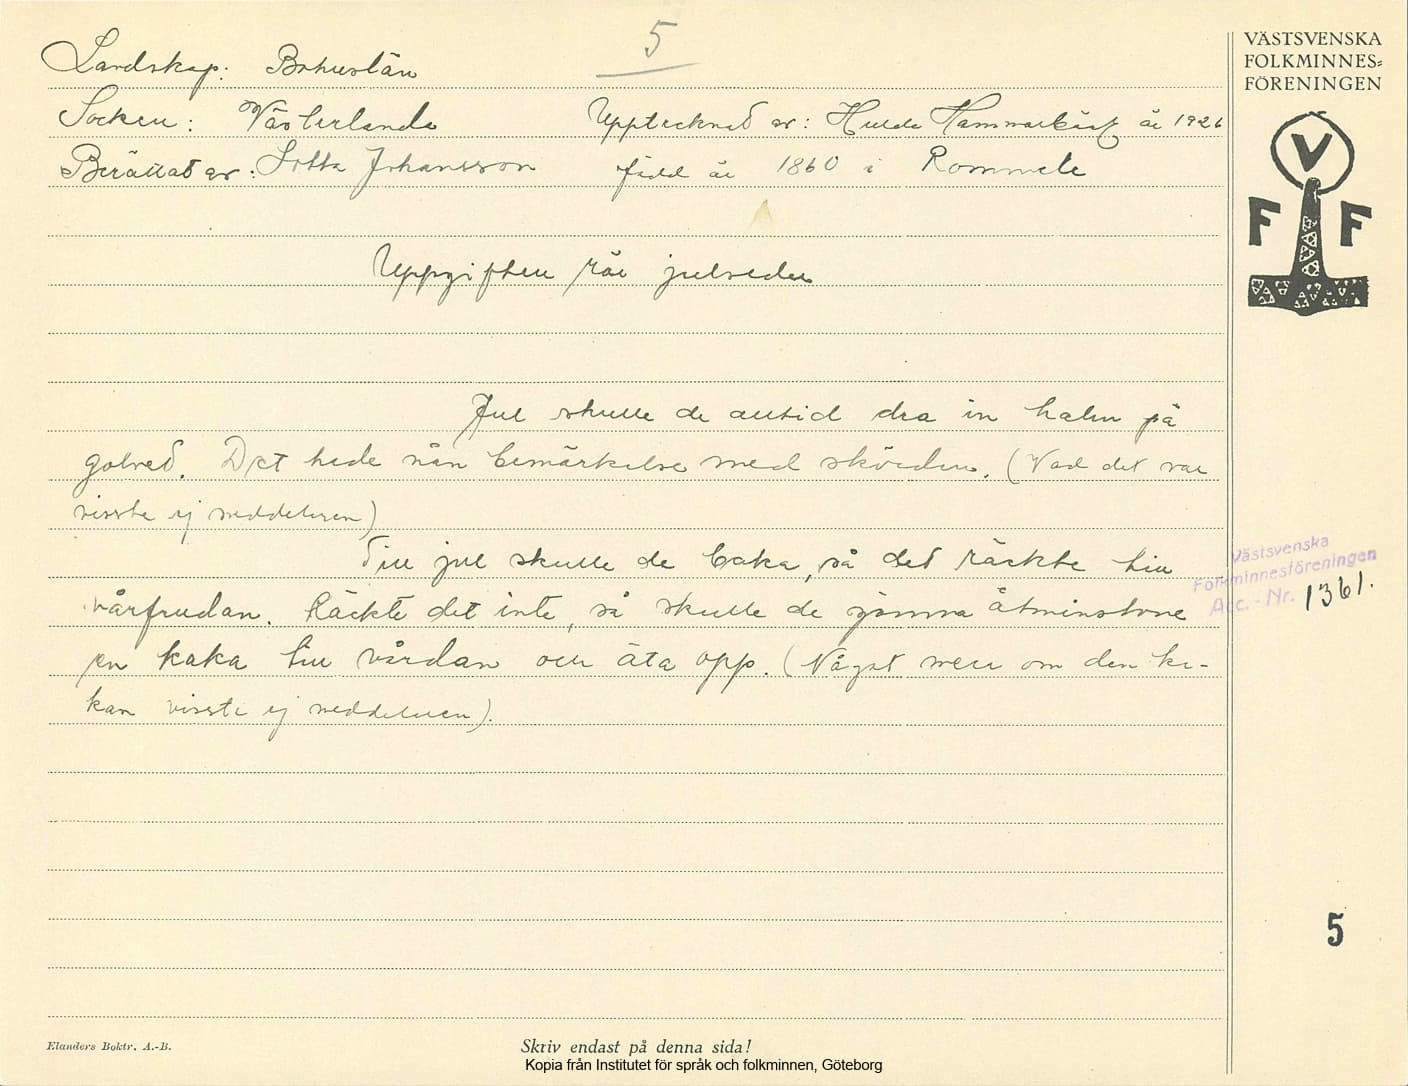 5
VÄSTSVENSKA
FOLKMINNES=
FÖRENINGEN
Landskap: Bohuslän
Socken: Västerlanda Upptecknad av: Hulda Hammarbäck år 1926
Berättat av: Lotta Johansson född år 1860 i Rommele
V
F F
Uppgiften rör julseder
Jul skulle de alltid dra in halm på
golved. Det hade nån bemärkelse med skörden. (Vad det var
visste ej meddelaren)
Till jul skulle de baka, så det räckte till
vårfrudan. Räckte det inte, så skulle de jömma åtminstone
en kaka till vårdan och äta opp. (Något mer om den ka-
kan visste ej meddelaren).
Västsvenska
Folkminnesföreningen
Acc. - Nr. 1361.
5
Elanders Boktr. A.-B.
Skriv endast på denna sida!
Kopia från Institutet för språk och folkminnen, Göteborg